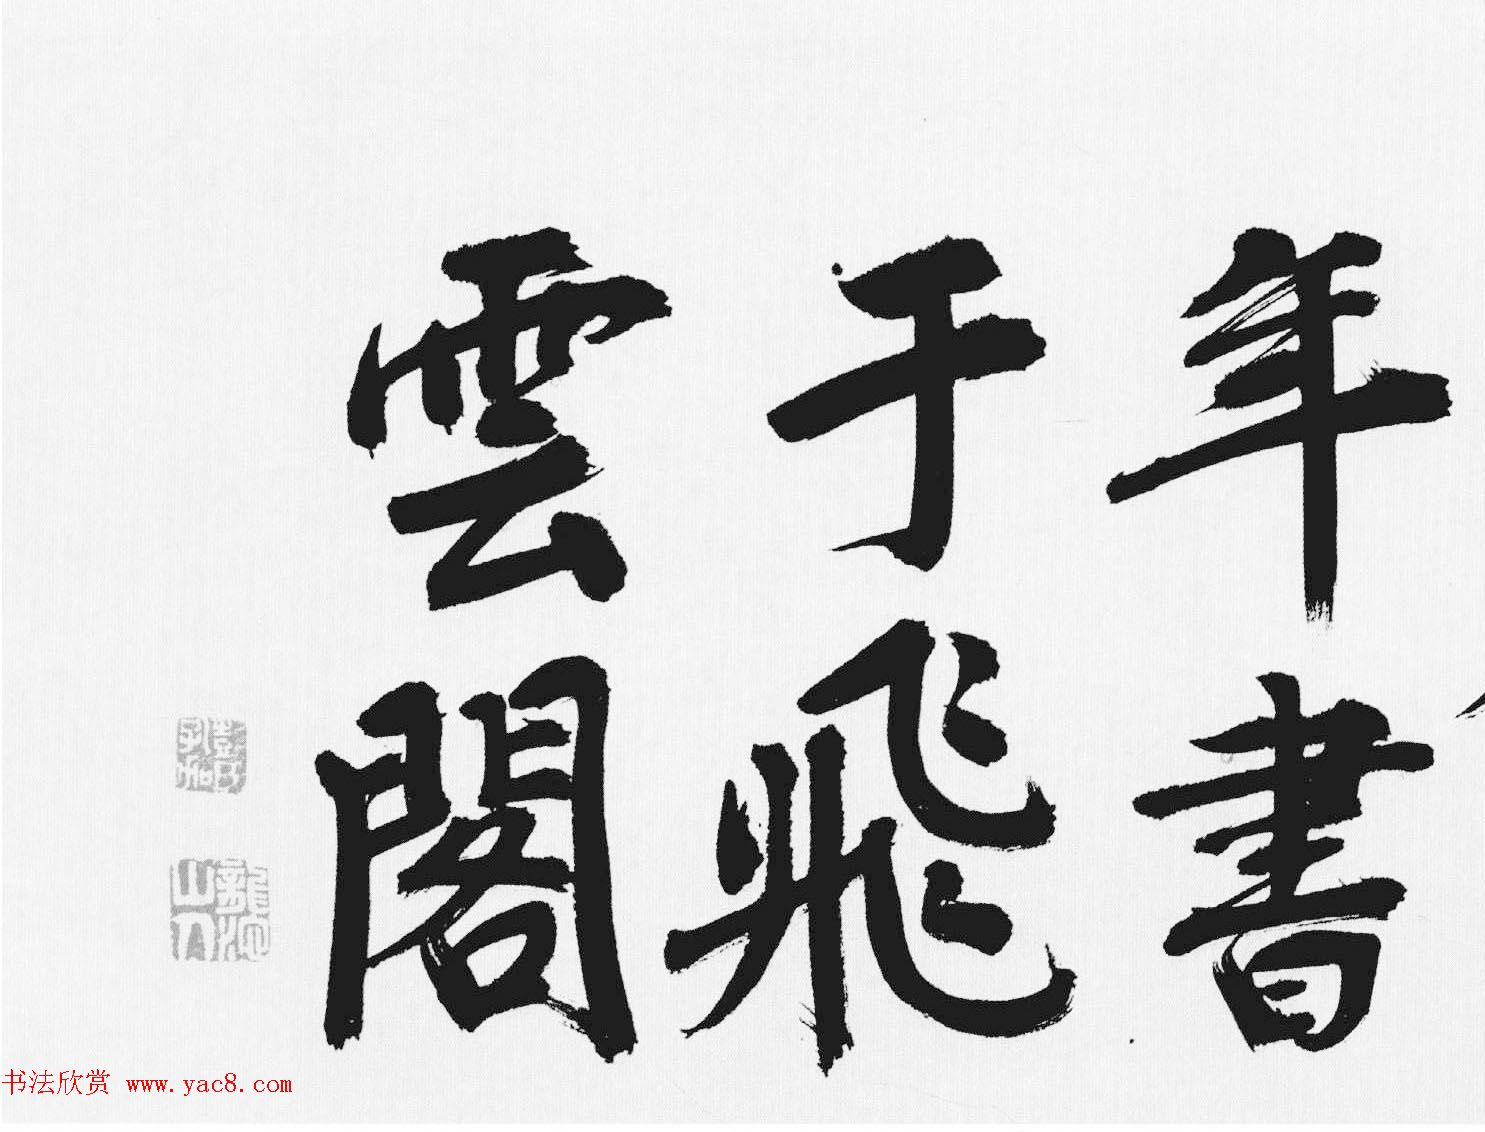 年書
于飛
雲閣
书法欣赏 www.yac8.com